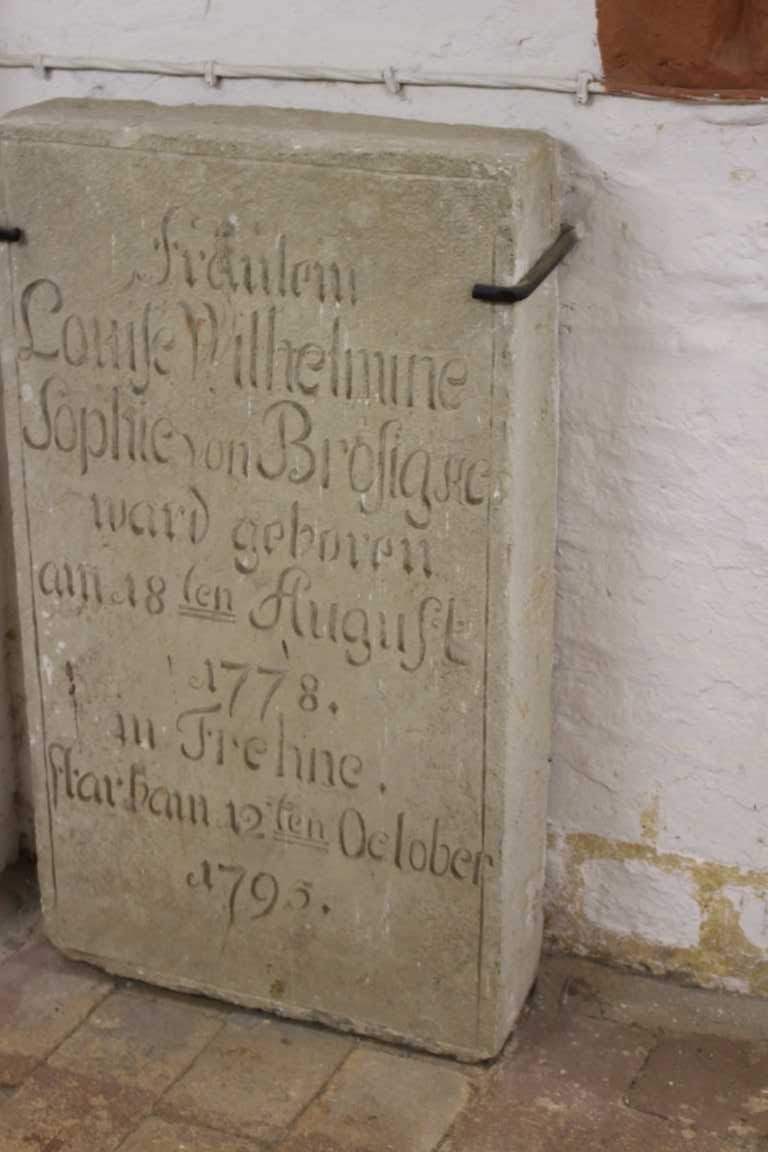 Fräulein
Louise Wilhelmine
Sophie von Brösigke
ward geboren
am 18ten August
1778.
in Trehne.
starb am 12ten October
1795.